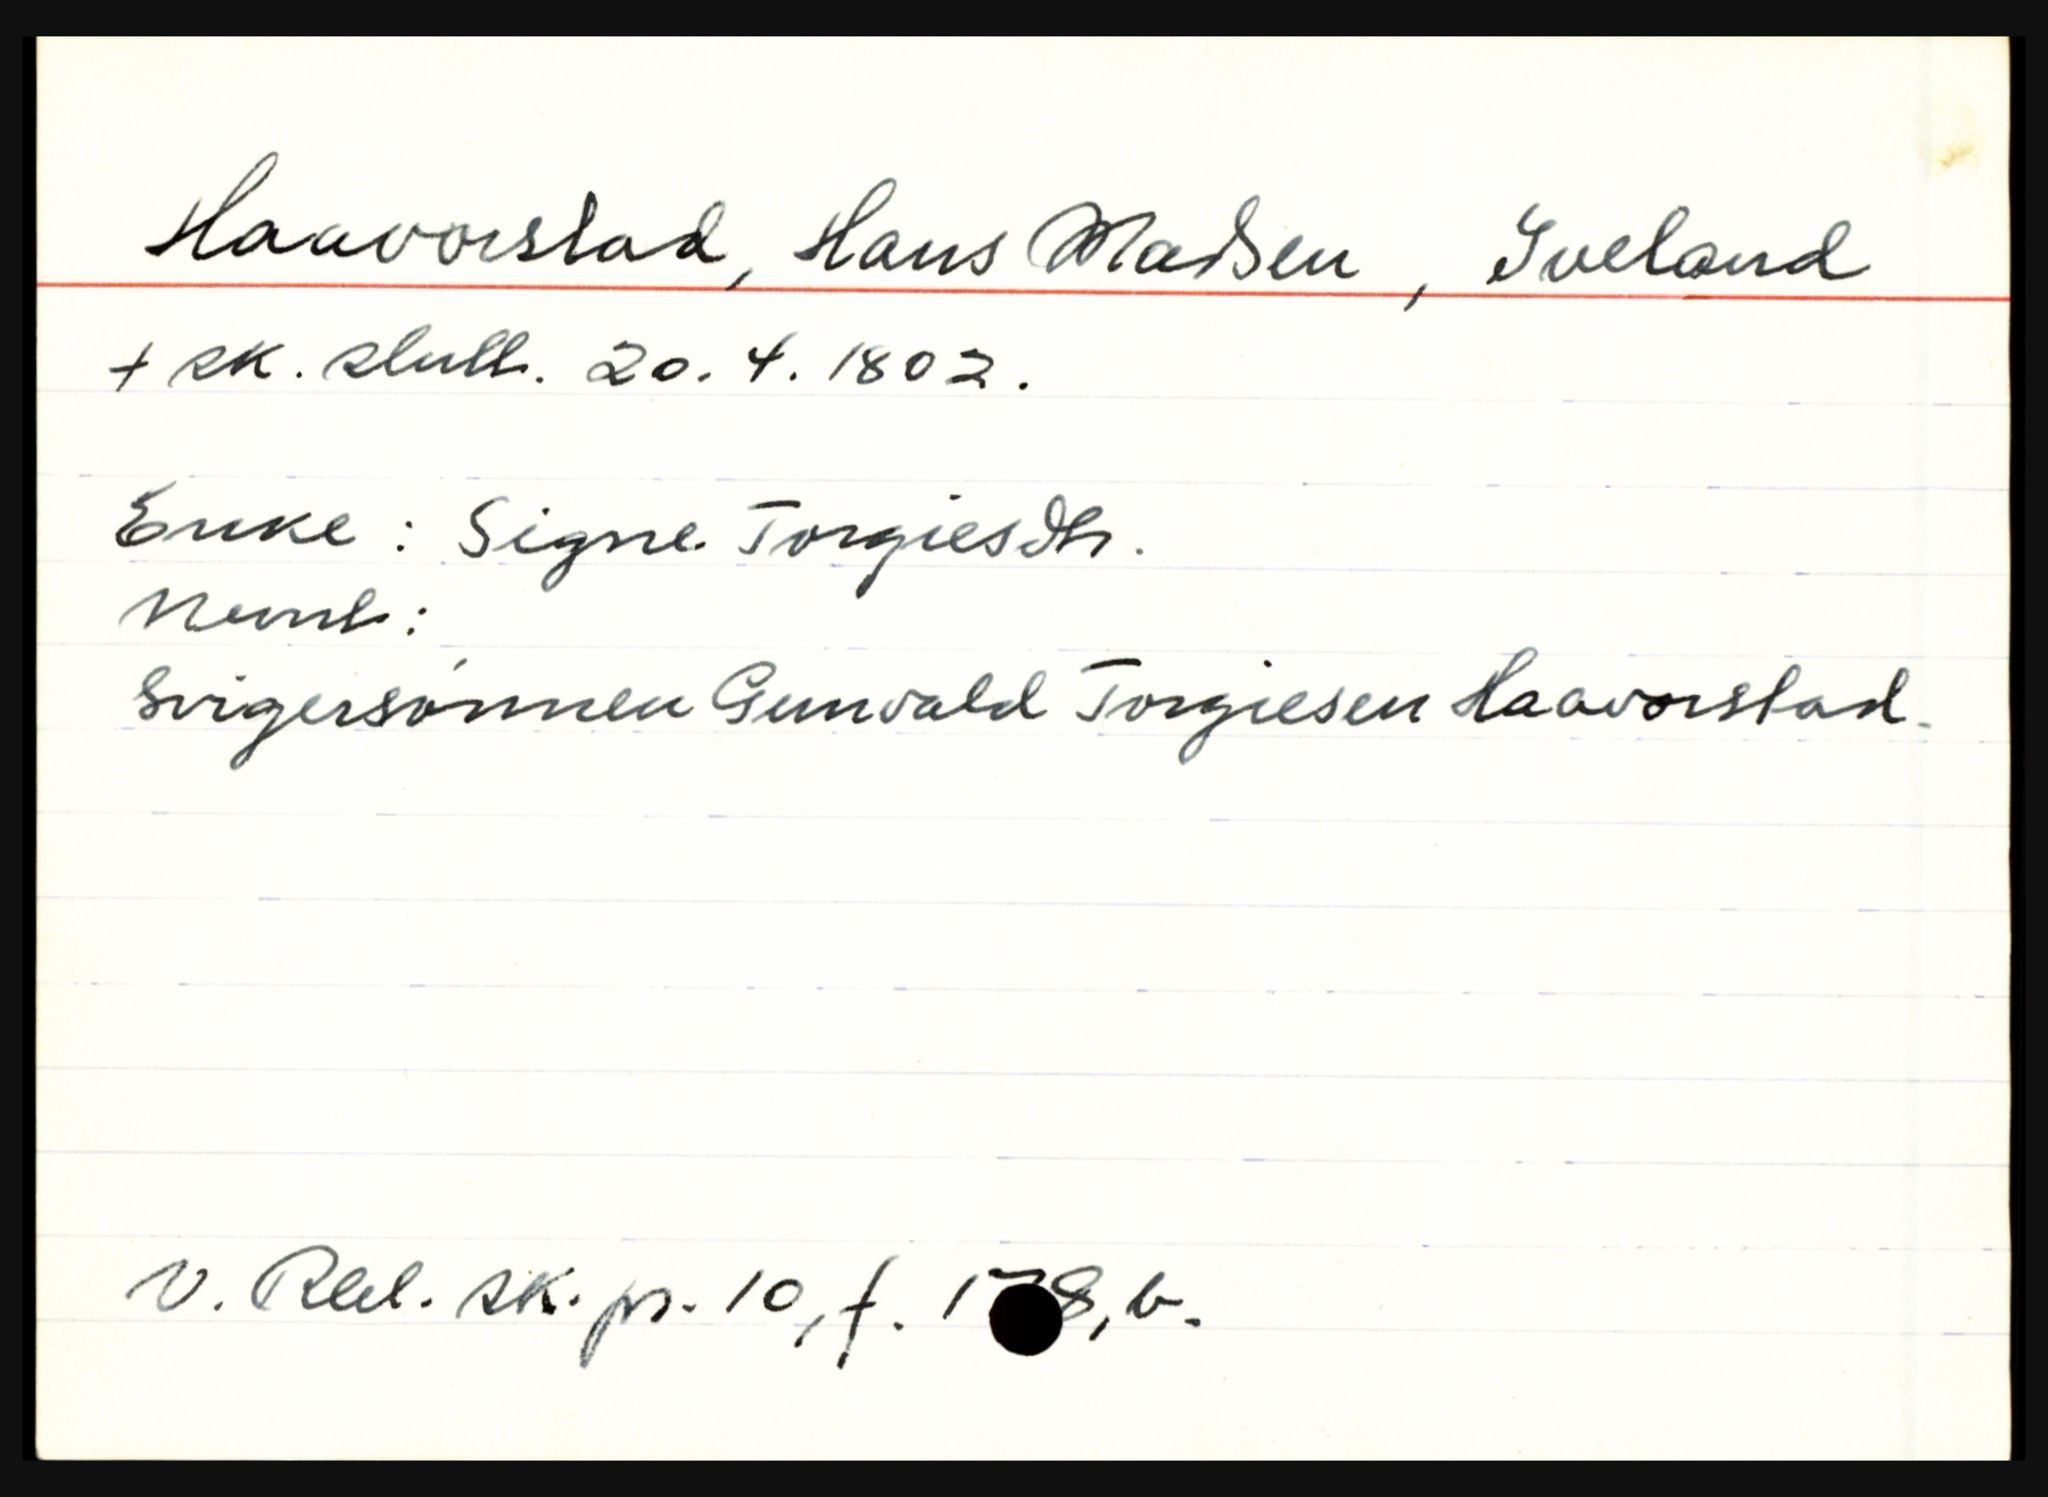 Haavorstad, Hans Madsen, Iveland
+ sk. slutt. 20. 4. 1802.
Enke: Signe Torgiesdtr.
Nevnt:
Svigersønnen Gunvald Torgiesen Haavorstad.
V. Rbd. sk. pr. 10, f. b.